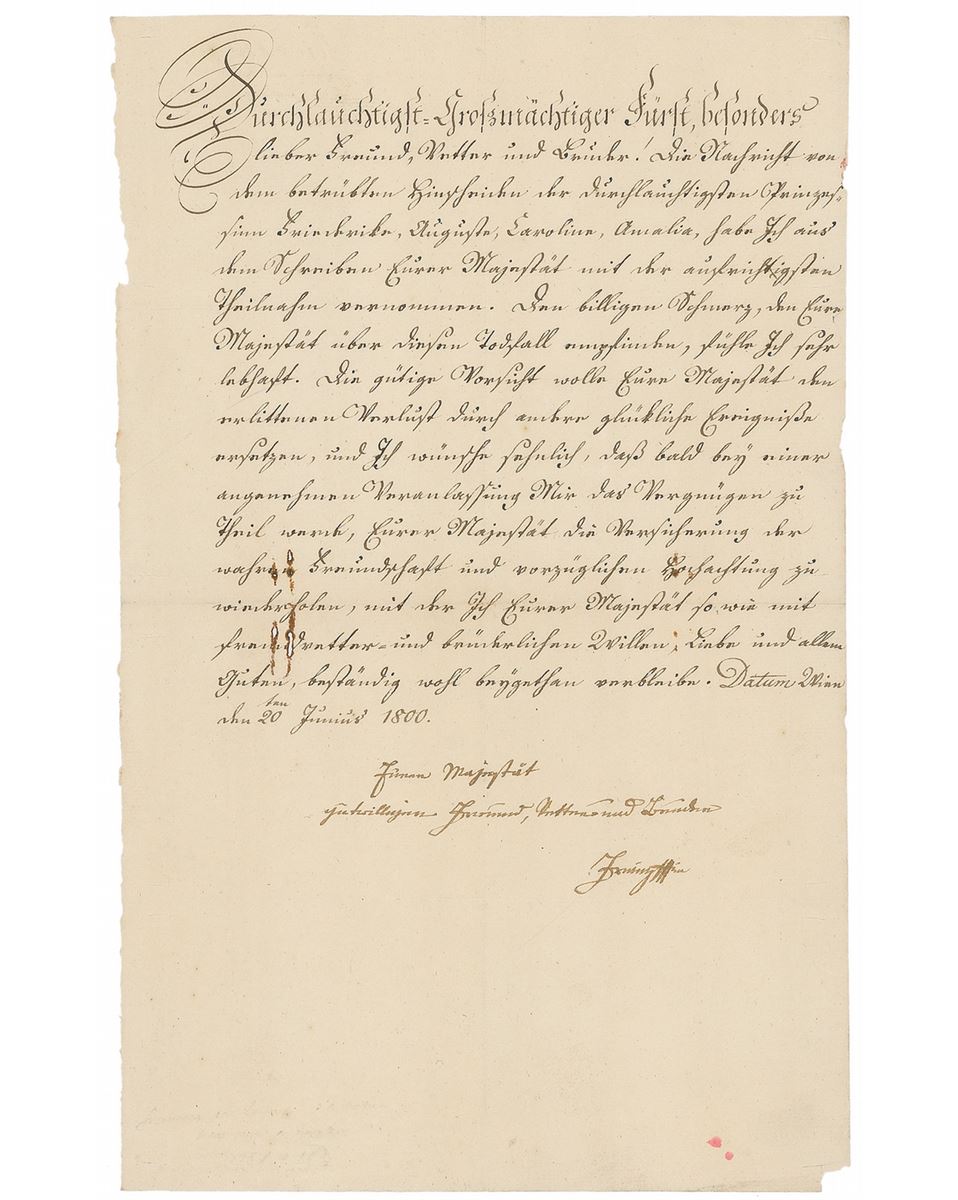 Durchlauchtigst-Großmächtiger Fürst, besonders
lieber Freund, Vetter und Bruder! Die Nachricht von
dem betrübten Hinscheiden der durchlauchtigsten Prinzes-
sinn Friederike, Auguste, Caroline, Amalia, habe Ich aus
dem Schreiben Eurer Majestät mit der aufrichtigsten
Theilnahm vernommen. Den billigen Schmerz, den Eure
Majestät über diesen Todfall empfinden, fühle Ich sehr
lebhaft. Die gütige Vorsicht wolle Eure Majestät den
erlittenen Verlust durch andere glükliche Ereigniße
ersetzen, und Ich wünsche sehnlich, daß bald bey einer
angenehmen Veranlassung Mir das Vergnügen zu
Theil werde, Eurer Majestät die Versicherung der
wahren Freundschaft und vorzüglichen Hochachtung zu
wiederholen, mit der Ich Eurer Majestät so wie mit
freundvetter- und brüderlichen Willen, Liebe und allem
Guten, beständig wohl beygethan verbleibe. Datum Wien
den 20ten Junius 1800.
Eurer Majestät
gutwilliger Freund, Vetter und Bruder
Franz